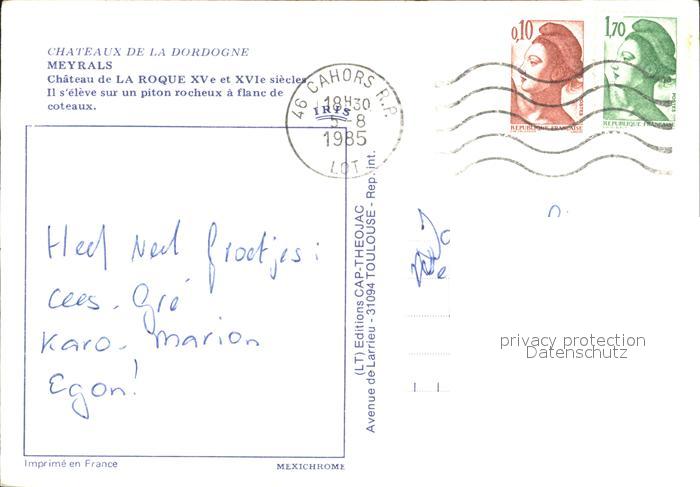 CHATEAUX DE LA DORDOGNE
MEYRALS
Château de LA ROQUE XVe et XVIe siècles
Il s'élève sur un piton rocheux à flanc de
coteaux.
IRIS
46 CAHORS R.P.
18H30
5-8
1985
LOT
0,10
POSTES
REPUBLIQUE FRANÇAISE
1,70
POSTES
REPUBLIQUE FRANÇAISE
Heel veel groetjes:
Cees. Gré
Karo. Marion
Egon!
(LT) Editions CAP-THEOJAC
Avenue de Larrieu - 31094 TOULOUSE - Rep. int.
privacy protection
Datenschutz
Imprimé en France
MEXICHROME